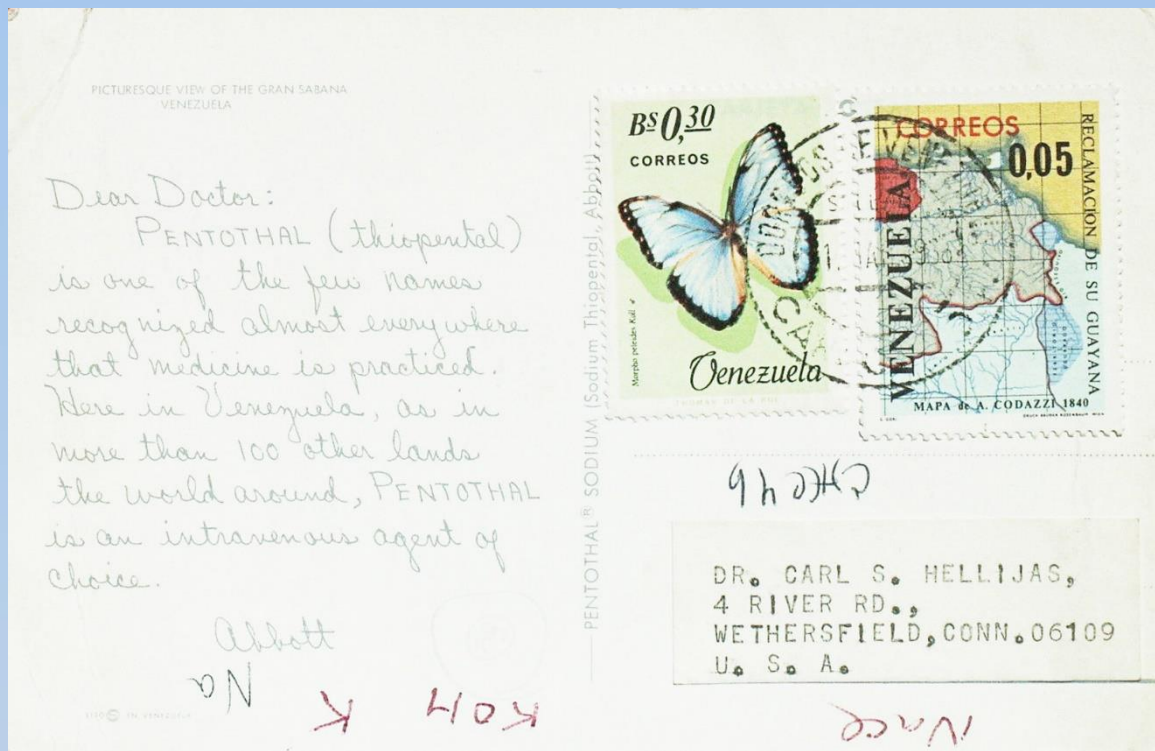 PICTURESQUE VIEW OF THE GRAN SABANA
VENEZUELA
Dear Doctor:
PENTOTHAL (thiopental)
is one of the few names
recognized almost everywhere
that medicine is practiced.
Here in Venezuela, as in
more than 100 other lands
the world around, PENTOTHAL
is an intravenous agent of
choice.
Abbott
Na
K
KOH
NaCl
PENTOTHAL® SODIUM (Sodium Thiopental, Abbott)
Bs 0,30
CORREOS
Morpho peleides Koll.
Venezuela
THOMAS DE LA RUE
CORREOS
0,05
VENEZUELA
RECLAMACION DE SU GUAYANA
MAPA de A. CODAZZI 1840
CORREOS DE VENEZUELA
DR. CARL S. HELLIJAS,
4 RIVER RD.,
WETHERSFIELD, CONN. 06109
U. S. A.